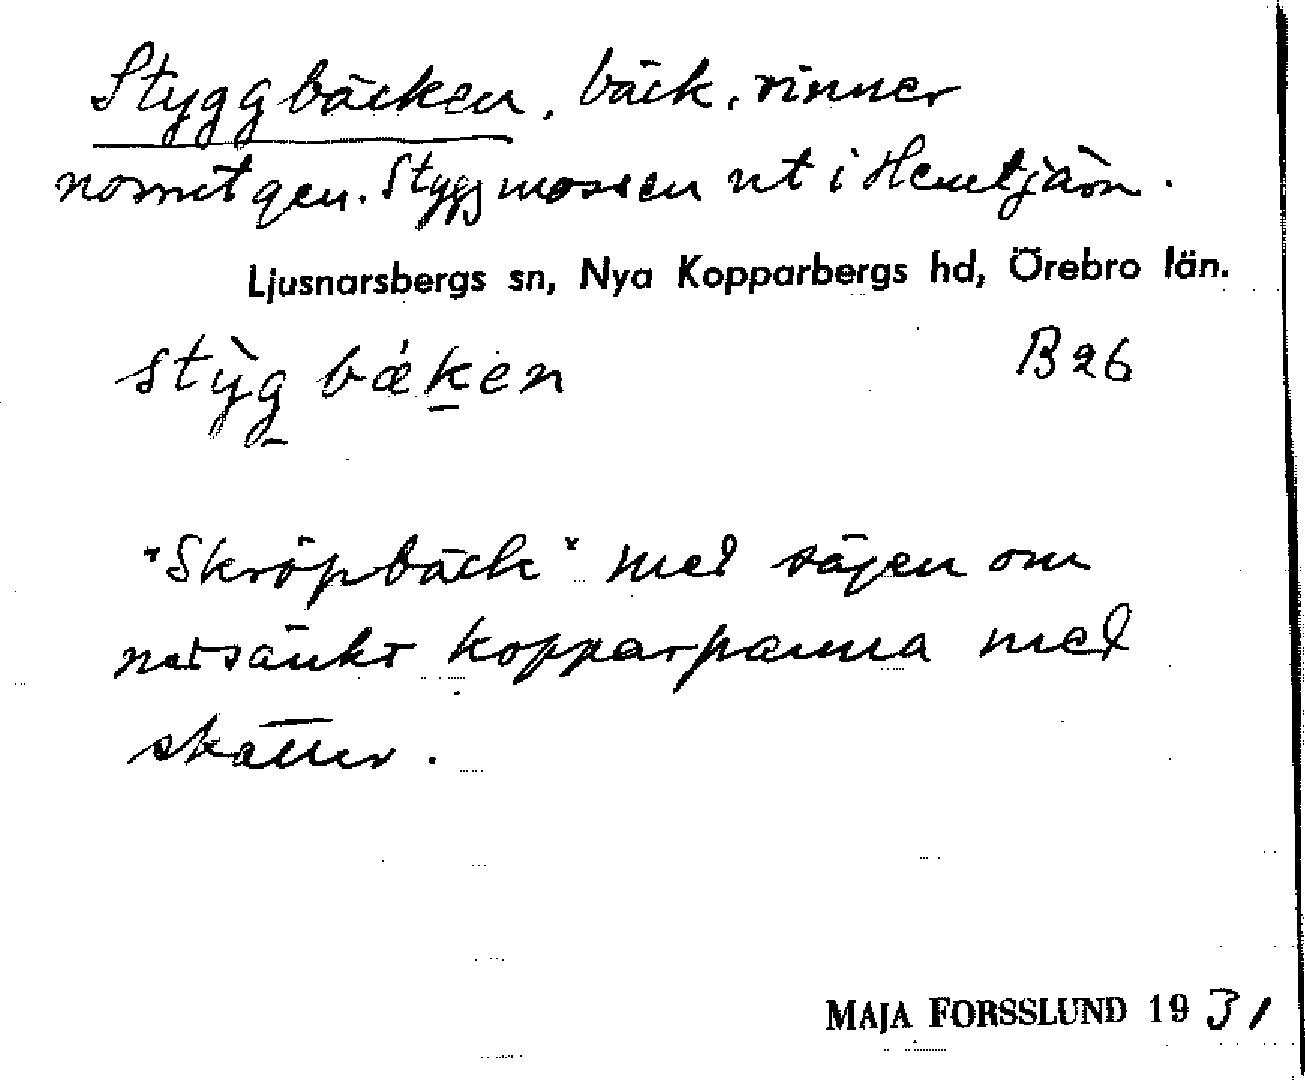 Styggbäcken, bäck, rinner
norrut gen. Styggmossen ut i Hemtjärn.
Ljusnarsbergs sn, Nya Kopparbergs hd, Örebro län.
stỳg bǽken B26
"Skröpbäck" med sägen om
nedsänkt kopparpanna med
skatter.
MAJA FORSSLUND 1931